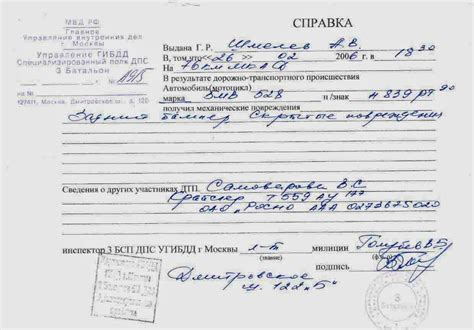 МВД РФ
Главное
Управление внутренних дел
г. Москвы
Управление ГИБДД
Специализированный полк ДПС
3 Батальон
№
на №
127411, г. Москва, Дмитровское ш., д. 122
СПРАВКА
Выдана Г. Р. Шмелев А.В.
В том, что "26" 02 2006 г. 18 30
На 76 км МКАД
В результате дорожно-транспортного происшествия
Автомобиль(мотоцикл)
марка БМВ 528 г/знак Н 839 РТ 90
получил механические повреждения
Задний бампер Скрытые повреждения
Сведения о других участниках ДТП. Самоверова В.С.
Крайслер Т 559 АУ 177
ОАО "Росно ААА 0273675020
инспектор 3 БСП ДПС УГИБДД г Москвы л-т милиции Голубев В.Б.
(звание) (фамилия)
подпись
Дмитровское
ш. 122 "Б"